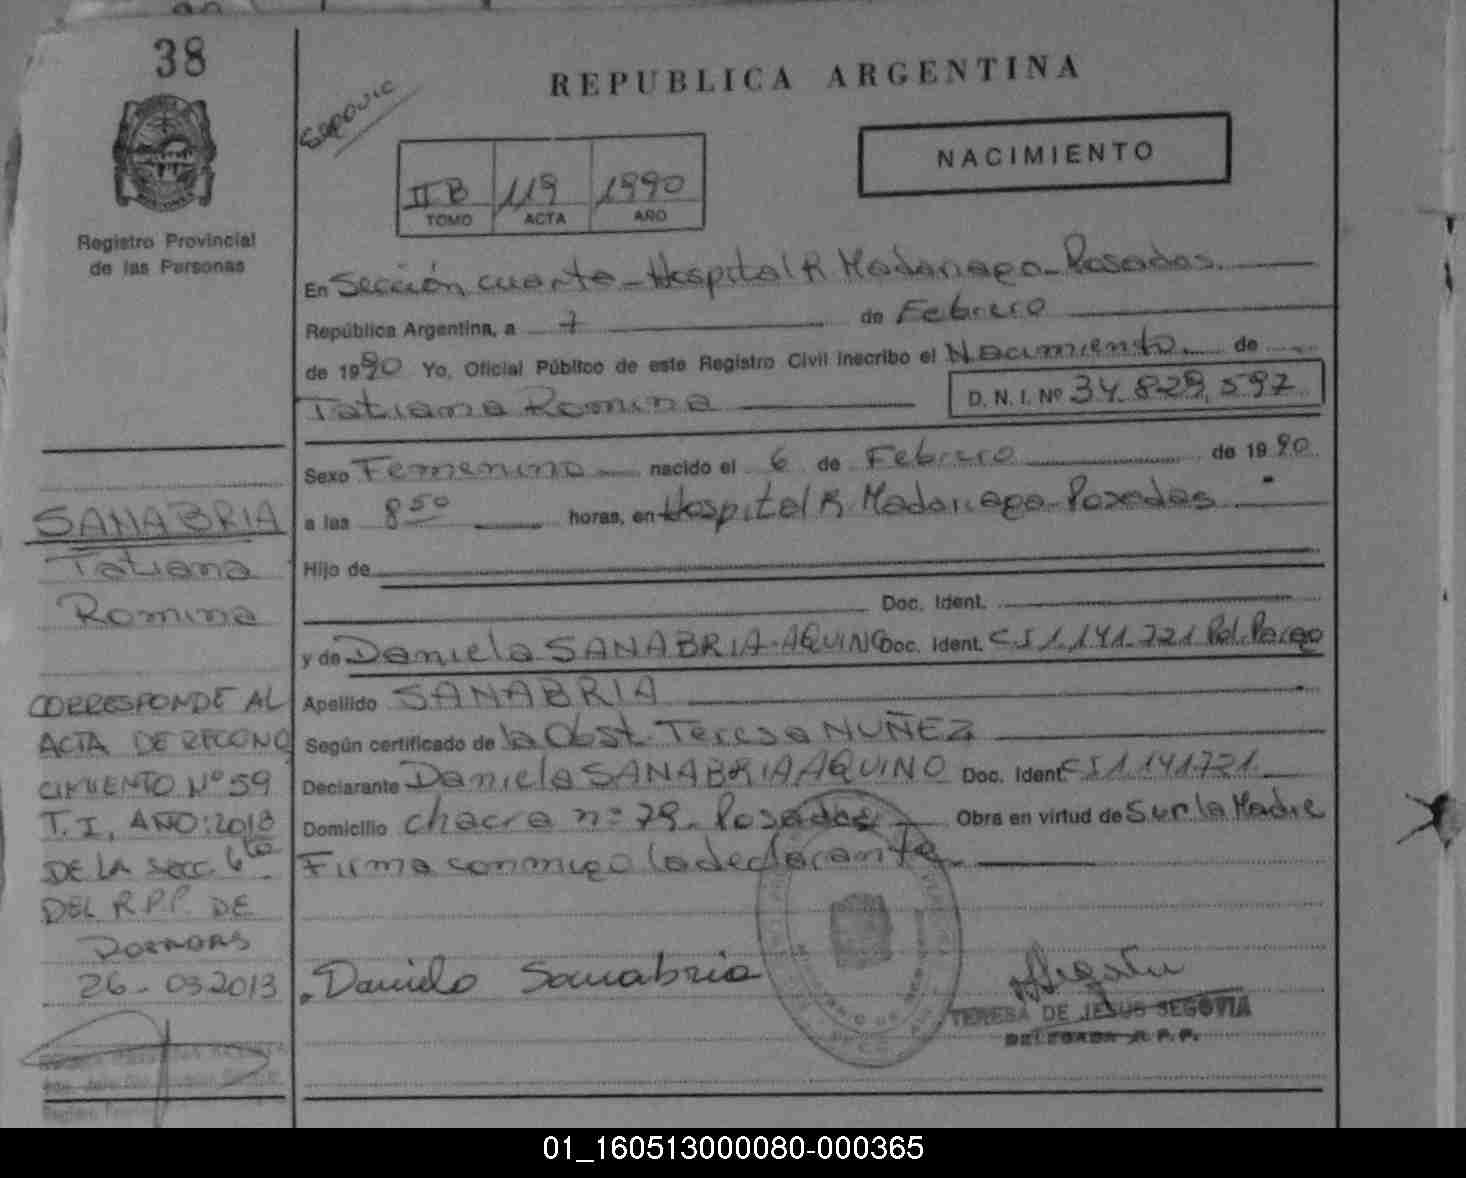 38
Registro Provincial
de las Personas
REPUBLICA ARGENTINA
NACIMIENTO
II B 119 1990
TOMO ACTA AÑO
En Sección cuarta - Hospital R Madariaga - Posadas
República Argentina, a 7 de Febrero
de 1990 Yo, Oficial Público de este Registro Civil inscribo el Nacimiento de
Tatiana Romina D. N. I. Nº 34.829.597
Sexo Femenino nacido el 6 de Febrero de 1990
a las 8 50 horas, en Hospital R. Madariaga - Posadas
Hijo de
Doc. Ident.
y de Daniela SANABRIA - AQUINO Doc. Ident. CI 1.141.721 Pol. Parag
Apellido SANABRIA
Según certificado de la Obst. Teresa NUÑEZ
Declarante Daniela SANABRIA AQUINO Doc. Ident CI 1.141.721
Domicilio chacra nº 79 - Posadas Obra en virtud de Ser la Madre
Firma conmigo la declarante
Daniela Sanabria
TERESA DE JESUS SEGOVIA
DELEGADA R.P.P.
SANABRIA
Tatiana
Romina
CORRESPONDE AL
ACTA DE RECONO
CIMIENTO Nº 59
T. I, AÑO: 2013
DE LA SECC. 6ta
DEL R.P.P. DE
POSADAS
26-03 2013
01_160513000080-000365